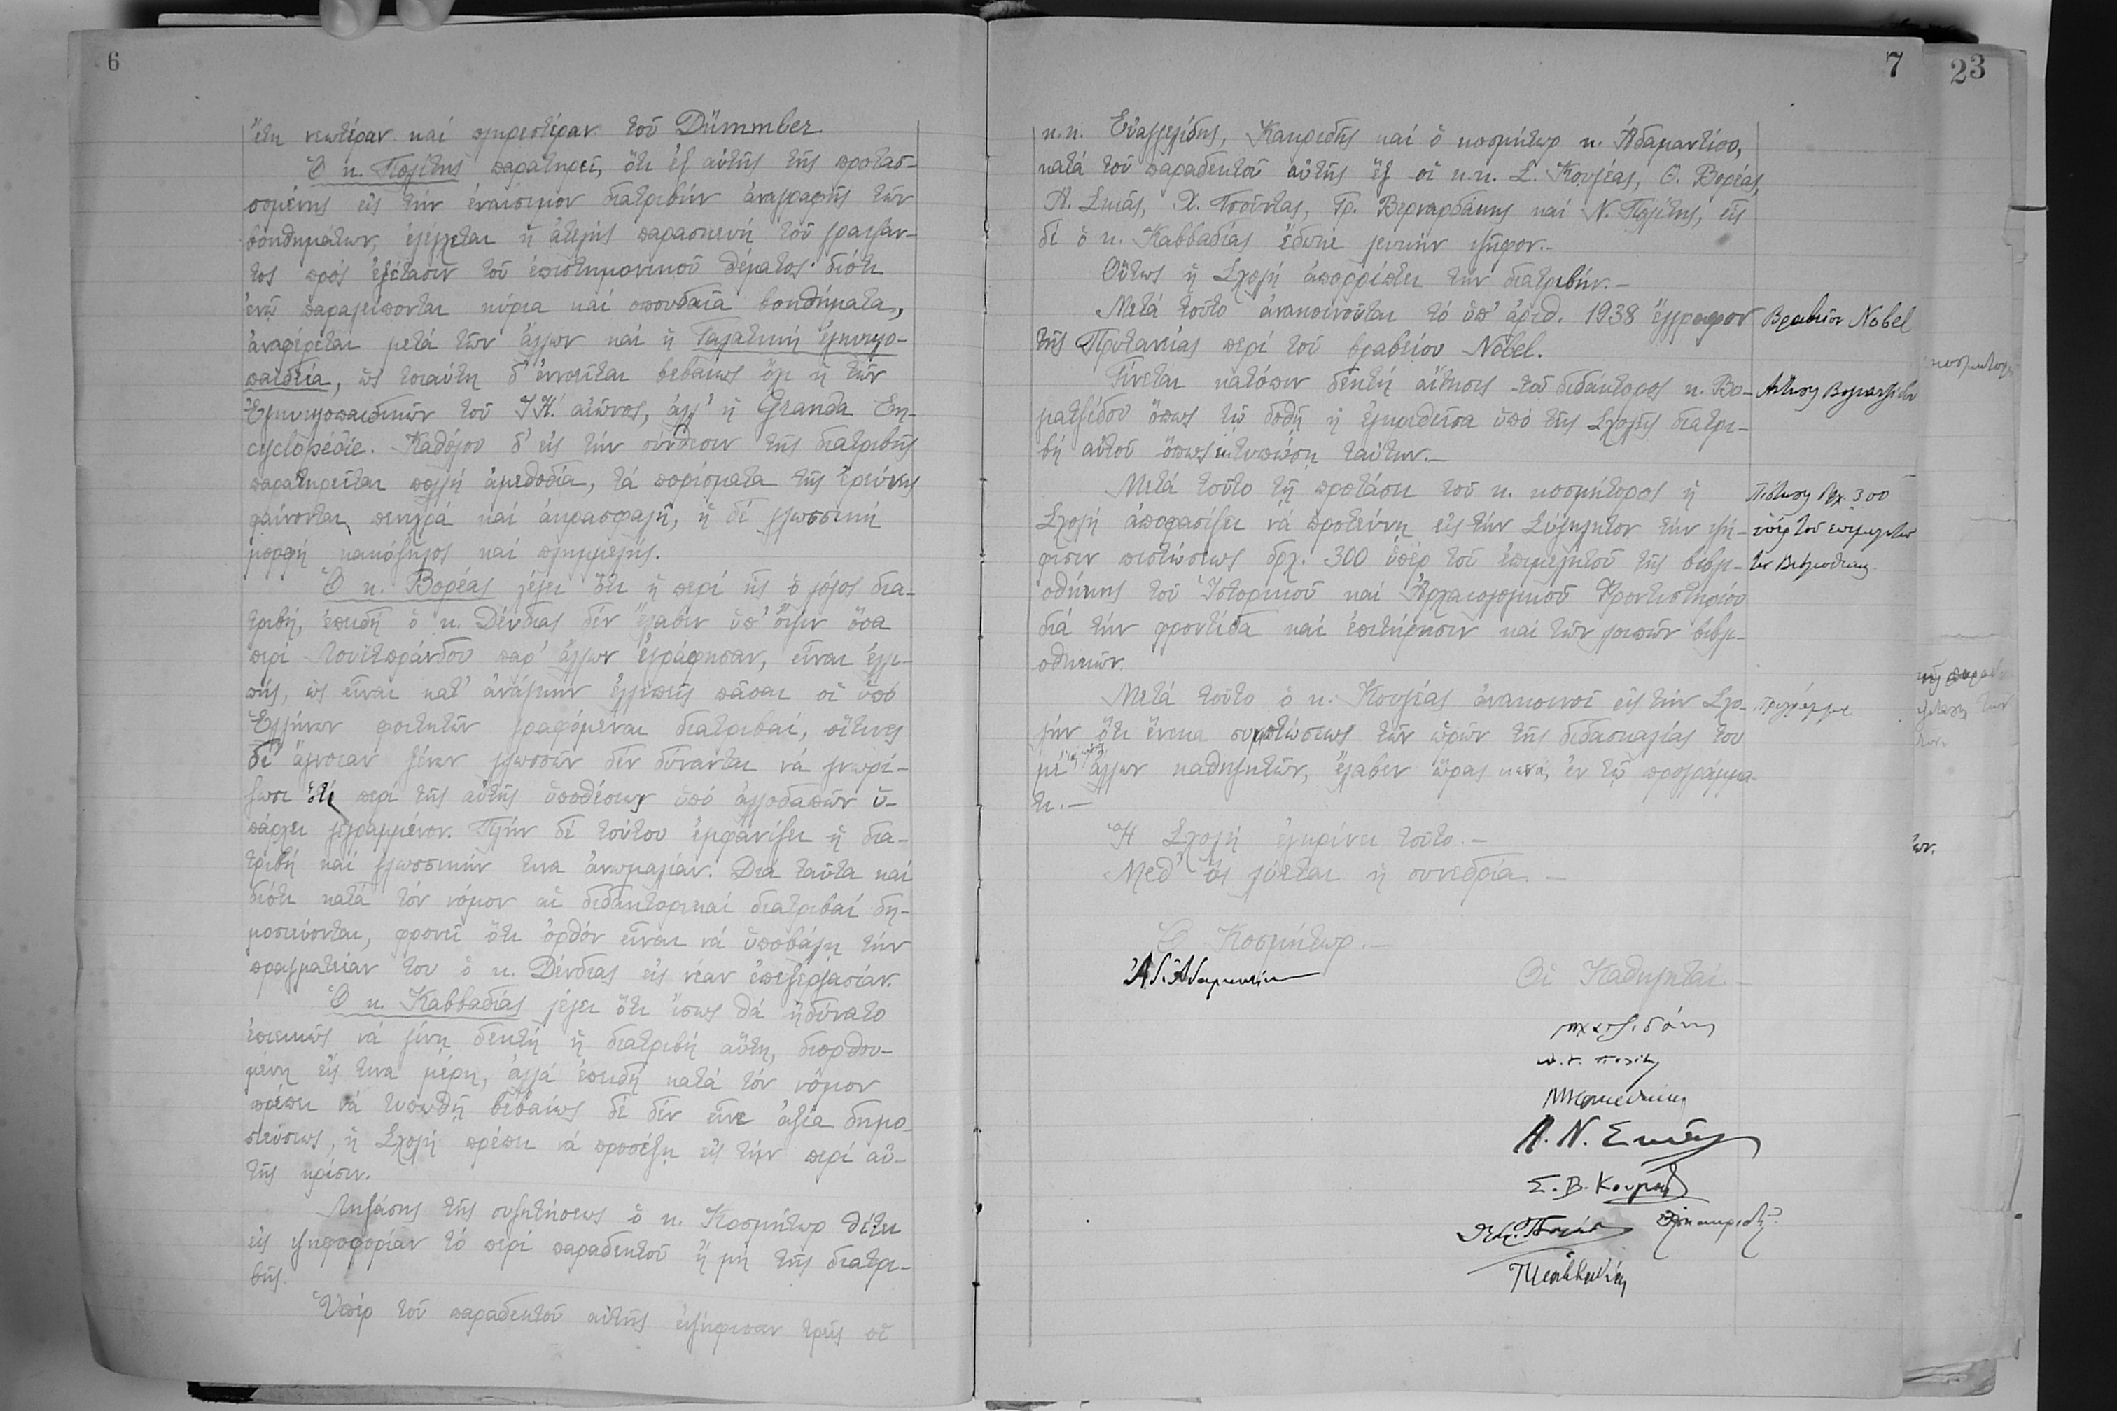 6
ἔτη νεωτέραν καί πληρεστέραν τοῦ Dümmber.
Ὁ κ. Πολίτης παρατηρεῖ, ὅτι ἐξ αὐτῆς τῆς προτασ-
σομένης εἰς τήν ἐναίσιμον διατριβήν ἀναγραφῆς τῶν
βοηθημάτων, ἐλέγχεται ἡ ἀτελής παρασκευή τοῦ γράψαν-
τος πρός ἐξέτασιν τοῦ ἐπιστημονικοῦ θέματος· διότι
ἐνῷ παραλείπονται κύρια καί σπουδαῖα βοηθήματα,
ἀναφέρεται μετά τῶν ἄλλων καί ἡ Γαλατική Ἐγκυκλο-
παιδεία, ὡς τοιαύτη δ' ἐννοεῖται βεβαίως ὄχι ἡ τῶν
Ἐγκυκλοπαιδικῶν τοῦ ΙΗ΄. αἰῶνος, ἀλλ' ἡ Granda En-
cyclopedie. Καθόλου δ' εἰς τήν σύνθεσιν τῆς διατριβῆς
παρατηρεῖται πολλή ἀμεθοδία, τά πορίσματα τῆς ἐρεύνης
φαίνονται πενιχρά καί ἀκρασφαλῆ, ἡ δέ γλωσσική
μορφή κακόζηλος καί πλημμελής.
Ὁ κ. Βορέας λέγει ὅτι ἡ περί ἧς ὁ λόγος δια-
τριβή, ἐπειδή ὁ κ. Δένδιας δέν ἔλαβεν ὑπ' ὄψιν ὅσα
περί Λουϊτπράνδου παρ' ἄλλων ἐγράφησαν, εἶναι ἐλλι-
πής, ὡς εἶναι κατ' ἀνάγκην ἐλλιπεῖς πᾶσαι αἱ ὑπό
Ἑλλήνων φοιτητῶν γραφόμεναι διατριβαί, οἵτινες
δι' ἄγνοιαν ξένων γλωσσῶν δέν δύνανται νά γνωρί-
ζωσι ὅ,τι περί τῆς αὐτῆς ὑποθέσεως ὑπό ἀλλοδαπῶν ὑ-
πάρχει γεγραμμένον. Πλήν δέ τούτου ἐμφανίζει ἡ δια-
τριβή καί γλωσσικήν τινα ἀνωμαλίαν. Διά ταῦτα καί
διότι κατά τόν νόμον αἱ διδακτορικαί διατριβαί δη-
μοσιεύονται, φρονεῖ ὅτι ὀρθόν εἶναι νά ὑποβάλῃ τήν
πραγματείαν του ὁ κ. Δένδιας εἰς νέαν ἐπεξεργασίαν.
Ὁ κ. Καββαδίας λέγει ὅτι ἴσως θά ἠδύνατο
ἐπιεικῶς νά γίνῃ δεκτή ἡ διατριβή αὕτη, διορθου-
μένη εἴς τινα μέρη, ἀλλά ἐπειδή κατά τόν νόμον
πρέπει νά τυπωθῇ βεβαίως δέ δέν εἶνε ἀξία δημο-
σιεύσεως, ἡ Σχολή πρέπει νά προσέξῃ εἰς τήν περί αὐ-
τῆς κρίσιν.
Ληξάσης τῆς συζητήσεως ὁ κ. Κοσμήτωρ θέτει
εἰς ψηφοφορίαν τό περί παραδεκτοῦ ἤ μή τῆς διατρι-
βῆς.
Ὑπέρ τοῦ παραδεκτοῦ αὐτῆς ἐψήφισαν τρεῖς οἱ
7
κ.κ. Εὐαγγελίδης, Κακριδῆς καί ὁ κοσμήτωρ κ. Ἀδαμαντίου,
κατά τοῦ παραδεκτοῦ αὐτῆς ἕξ οἱ κ.κ. Σ. Κουγέας, Θ. Βορέας,
Α. Σκιᾶς, Χ. Τσούντας, Γρ. Βερναρδάκης καί Ν. Πολίτης, εἷς
δέ ὁ κ. Καββαδίας ἔδωκε λευκήν ψῆφον.-
Οὕτως ἡ Σχολή ἀπορρίπτει τήν διατριβήν.-
Μετά τοῦτο ἀνακοινοῦται τό ὑπ' ἀριθ. 1938 ἔγγραφον
τῆς Πρυτανείας περί τοῦ βραβείου Nobel.
Γίνεται κατόπιν δεκτή αἴτησις τοῦ διδάκτορος κ. Βο-
γιατζίδου ὅπως τῷ δοθῇ ἡ ἐγκριθεῖσα ὑπό τῆς Σχολῆς διατρι-
βή αὐτοῦ ὅπως ἐκτυπώσῃ ταύτην.-
Μετά τοῦτο τῇ προτάσει τοῦ κ. κοσμήτορος ἡ
Σχολή ἀποφασίζει νά προτείνῃ εἰς τήν Σύγκλητον τήν ψή-
φισιν πιστώσεως δρχ. 300 ὑπέρ τοῦ ἐπιμελητοῦ τῆς βιβλι-
οθήκης τοῦ Ἱστορικοῦ καί Ἀρχαιολογικοῦ Φροντιστηρίου
διά τήν φροντίδα καί ἐπιτήρησιν καί τῶν λοιπῶν βιβλι-
οθηκῶν.
Μετά τοῦτο ὁ κ. Κουγέας ἀνακοινοῖ εἰς τήν Σχο-
λήν ὅτι ἕνεκα συμπτώσεως τῶν ὡρῶν τῆς διδασκαλίας του
μέ ἄλλων καθηγητῶν, ἔλαβεν ὥρας κενάς ἐν τῷ προγράμμα-
τι.-
Ἡ Σχολή ἐγκρίνει τοῦτο.-
Μεθ' ὅ λύεται ἡ συνεδρία.-
Ὁ Κοσμήτωρ.-
Ἀδ. Ἀδαμαντίου
Οἱ Καθηγηταί
Ν. Γ. Πολίτης
Α. Ν. Σκιᾶς
Σ. Β. Κουγέας
Βραβεῖον Nobel
Αἴτησις Βογιατζίδου
Πίστωσις δρχ. 300
ὑπέρ τοῦ ἐπιμελητοῦ
τῶν Βιβλιοθηκῶν
Πρόγραμμα
23